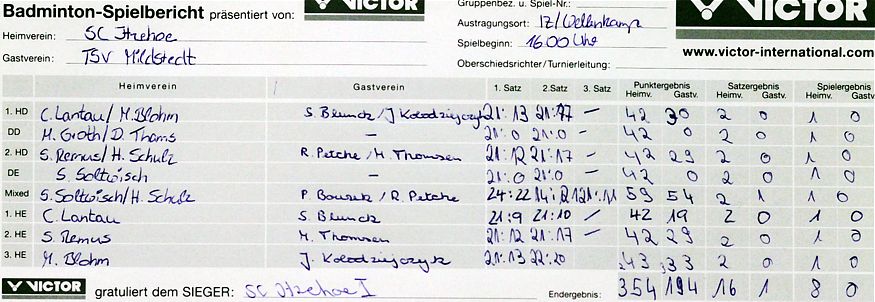 Badminton-Spielbericht präsentiert von: VICTOR Gruppenbez. u. Spiel-Nr.: VICTOR
Austragungsort: IZ/Wellenkamp
Heimverein: SC Itzehoe Spielbeginn: 16 00 Uhr www.victor-international.com
Gastverein: TSV Mildstedt Oberschiedsrichter/Turnierleitung:
Heimverein Gastverein 1. Satz 2. Satz 3. Satz Punktergebnis Heimv. Gastv. Satzergebnis Heimv. Gastv. Spielergebnis Heimv. Gastv.
1. HD C. Lantau/ M. Blohm S. Blunck/J Kolodziejczyk 21:13 21:17 – 42 30 2 0 1 0
DD M. Groth/D. Thams – 21:0 21:0 – 42 0 2 0 1 0
2. HD S. Remus/ H. Schulz R. Petche/M. Thomsen 21:12 21:17 – 42 29 2 0 1 0
DE S. Soltwisch – 21:0 21:0 – 42 0 2 0 1 0
Mixed S. Soltwisch/H. Schulz P. / R. Petche 24:22 14:21 21:11 59 54 2 1 1 0
1. HE C. Lantau S. Blunck 21:9 21:10 / 42 19 2 0 1 0
2. HE S. Remus M. Thomsen 21:12 21:17 – 42 29 2 0 1 0
3. HE M. Blohm J. Kolodziejczyk 21:13 22:20 43 33 2 0 1 0
VICTOR gratuliert dem SIEGER: SC Itzehoe I Endergebnis: 354 194 16 1 8 0